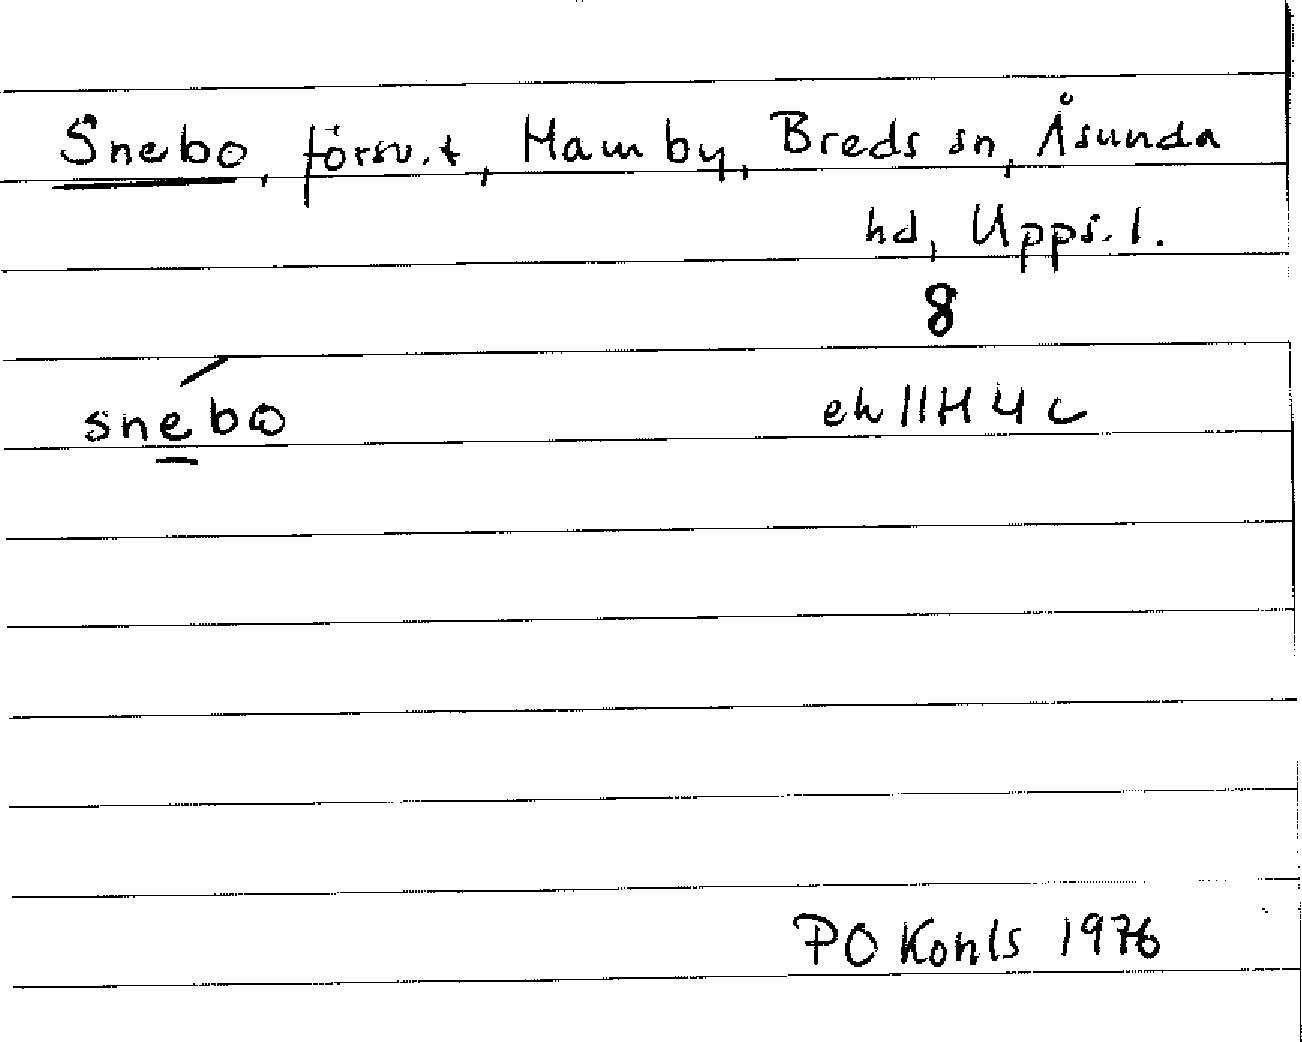 Snebo, försv. t, Hamby, Breds sn, Åsunda
hd, Upps. l.
8
snebo ek 11H 4 c
PO Kohls 1976